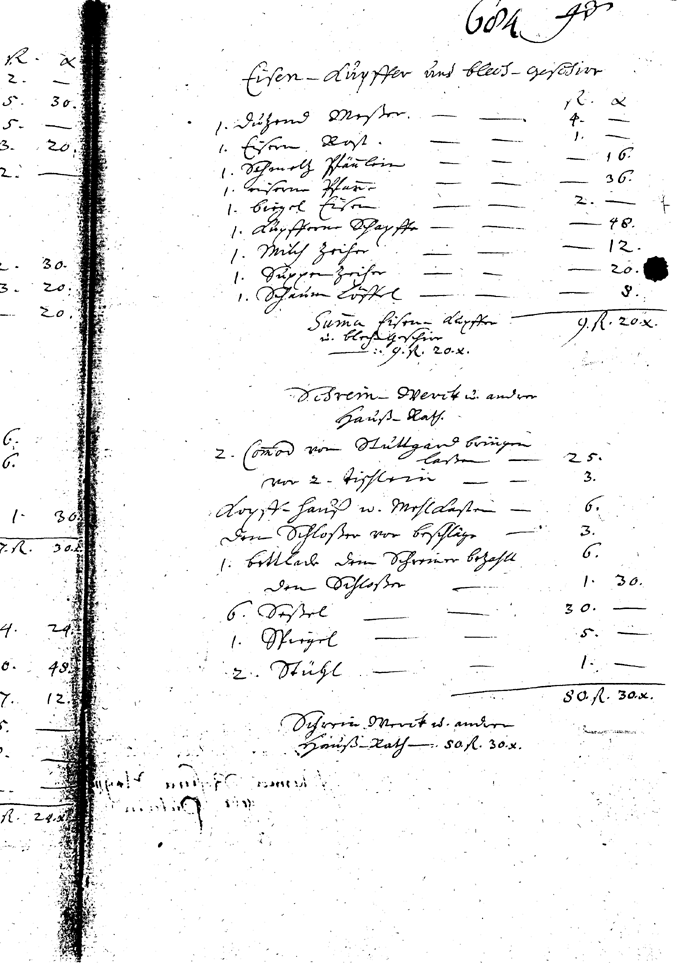 R. x
2. —
5. 30.
5. —
3. 20.
2. —
2. 30.
3. 20.
— 20.
6.
6.
1. 30.
7. R. 30x
4. 24.
0. 48.
7. 12.
5. —
R. 24x
684
Eisen- Kupffer und blech- geschirr
R. x
1. dutzend Meßer. — — 4. —
1. Eisern Rost. — — 1. —
1. Schmeltz Pfännlein — — — 16.
1. eiserne Pfann — — — 36.
1. biegel Eisen — — 2. —
1. Kupfferne Schapffe — — — 48.
1. Milch Zeiher — — — 12.
1. Suppen Zeiher — — — 20.
1. Schaum Löffel — — — 8.
Summa Eisen- Kupffer 9. R. 20.x.
u. blech geschirr
— :. 9. R. 20.x.
Schrein- Werck u. ander
Hauß- Rath.
2. Comod von Stuttgard bringen
laßen — 25.
vor 2. tischlein — — 3.
Hauß u. Mehlkasten — 6.
dem Schloßer vor beschläge — 3.
1. bettlade dem Schreiner bezahlt 6.
dem Schloßer — 1. 30.
6. Seßel — — 30. —
1. Spiegel — — 5. —
2. Stühl — — 1. —
80. R. 30.x.
Schrein Werck u. ander
Hauß- Rath —. 80. R. 30.x.